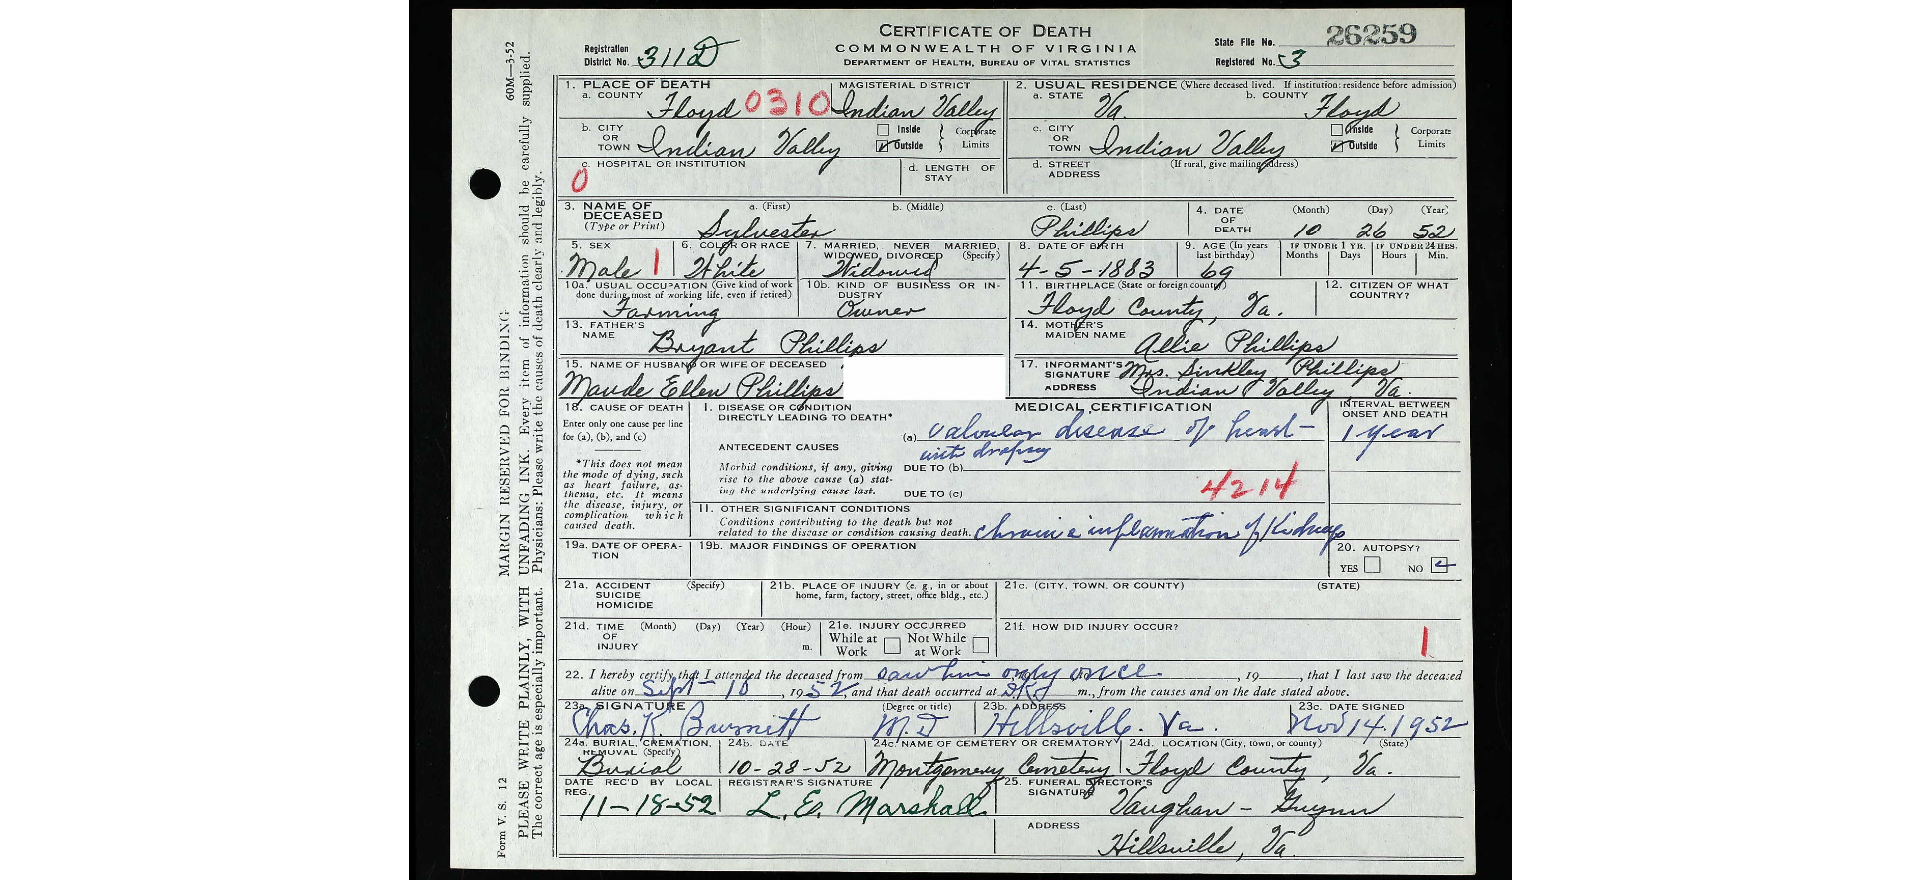 CERTIFICATE OF DEATH
COMMONWEALTH OF VIRGINIA
DEPARTMENT OF HEALTH, BUREAU OF VITAL STATISTICS
Registration District No. 311D
State File No. 26259
Registered No. 3
60M—3-52
Form V. S. 12
MARGIN RESERVED FOR BINDING
PLEASE WRITE PLAINLY, WITH UNFADING INK. Every item of information should be carefully supplied.
The correct age is especially important. Physicians: Please write the causes of death clearly and legibly.
1. PLACE OF DEATH
a. COUNTY Floyd 0310
MAGISTERIAL DISTRICT Indian Valley
2. USUAL RESIDENCE (Where deceased lived. If institution: residence before admission)
a. STATE Va.
b. COUNTY Floyd
b. CITY OR TOWN Indian Valley
Inside Outside Corporate Limits
c. CITY OR TOWN Indian Valley
Inside Outside Corporate Limits
c. HOSPITAL OR INSTITUTION 0
d. LENGTH OF STAY
d. STREET ADDRESS (If rural, give mailing address)
3. NAME OF DECEASED (Type or Print)
a. (First) Sylvester
b. (Middle)
c. (Last) Phillips
4. DATE OF DEATH (Month) (Day) (Year) 10 26 52
5. SEX Male 1
6. COLOR OR RACE White
7. MARRIED, NEVER MARRIED, WIDOWED, DIVORCED (Specify) Widowed
8. DATE OF BIRTH 4-5-1883
9. AGE (In years last birthday) 69
IF UNDER 1 YR. Months Days
IF UNDER 24 HRS. Hours Min.
10a. USUAL OCCUPATION (Give kind of work done during most of working life, even if retired) Farming
10b. KIND OF BUSINESS OR INDUSTRY Owner
11. BIRTHPLACE (State or foreign country) Floyd County, Va.
12. CITIZEN OF WHAT COUNTRY?
13. FATHER'S NAME Bryant Phillips
14. MOTHER'S MAIDEN NAME Allie Phillips
15. NAME OF HUSBAND OR WIFE OF DECEASED Maude Ellen Phillips
17. INFORMANT'S SIGNATURE Mrs. Sinkley Phillips
ADDRESS Indian Valley, Va.
18. CAUSE OF DEATH
Enter only one cause per line for (a), (b), and (c)
*This does not mean the mode of dying, such as heart failure, asthenia, etc. It means the disease, injury, or complication which caused death.
MEDICAL CERTIFICATION
INTERVAL BETWEEN ONSET AND DEATH
I. DISEASE OR CONDITION DIRECTLY LEADING TO DEATH*
(a) valvular disease of heart— 1 year
with dropsy
ANTECEDENT CAUSES
Morbid conditions, if any, giving rise to the above cause (a) stating the underlying cause last.
DUE TO (b)
DUE TO (c)
4214
II. OTHER SIGNIFICANT CONDITIONS
Conditions contributing to the death but not related to the disease or condition causing death. chronic inflammation of Kidneys
19a. DATE OF OPERATION
19b. MAJOR FINDINGS OF OPERATION
20. AUTOPSY?
YES NO
21a. ACCIDENT SUICIDE HOMICIDE (Specify)
21b. PLACE OF INJURY (e. g., in or about home, farm, factory, street, office bldg., etc.)
21c. (CITY, TOWN, OR COUNTY) (STATE)
21d. TIME OF INJURY (Month) (Day) (Year) (Hour) m.
21e. INJURY OCCURRED
While at Work Not While at Work
21f. HOW DID INJURY OCCUR?
1
22. I hereby certify that I attended the deceased from saw him only once, 19__, that I last saw the deceased
alive on Sept-10, 1952, and that death occurred at m., from the causes and on the date stated above.
23a. SIGNATURE Chas. K. Burnett
(Degree or title) M.D
23b. ADDRESS Hillsville, Va.
23c. DATE SIGNED Nov 14. 1952
24a. BURIAL, CREMATION, REMOVAL (Specify) Burial
24b. DATE 10-28-52
24c. NAME OF CEMETERY OR CREMATORY Montgomery Cemetery
24d. LOCATION (City, town, or county) (State) Floyd County, Va.
DATE REC'D BY LOCAL REG. 11-18-52
REGISTRAR'S SIGNATURE L. E. Marshall
25. FUNERAL DIRECTOR'S SIGNATURE Vaughan - Guynn
ADDRESS Hillsville, Va.